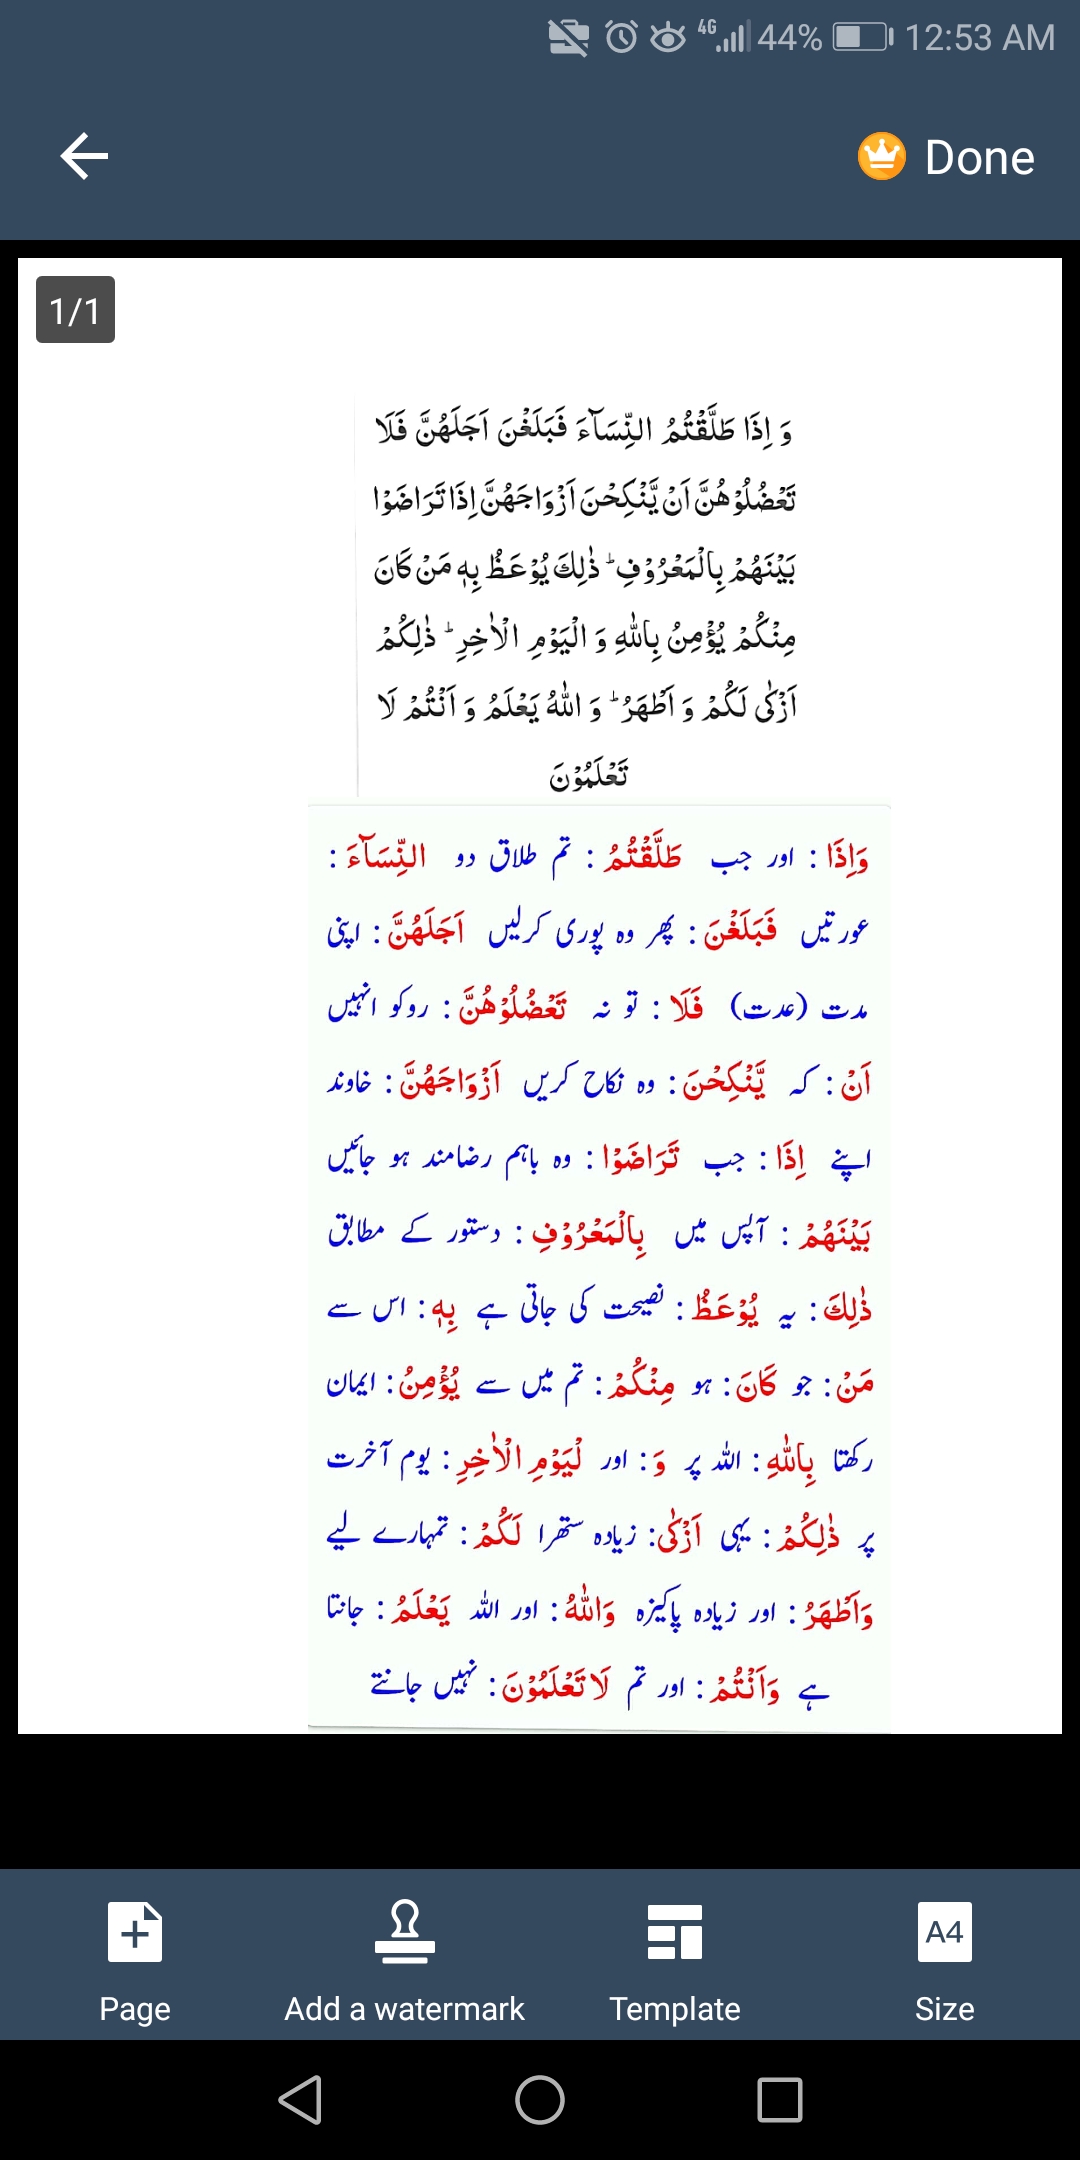 4G 44% 12:53 AM
Done
1/1
وَ اِذَا طَلَّقْتُمُ النِّسَآءَ فَبَلَغْنَ اَجَلَهُنَّ فَلَا
تَعْضُلُوْهُنَّ اَنْ یَّنْكِحْنَ اَزْوَاجَهُنَّ اِذَا تَرَاضَوْا
بَیْنَهُمْ بِالْمَعْرُوْفِؕ ذٰلِكَ یُوْعَظُ بِهٖ مَنْ كَانَ
مِنْكُمْ یُؤْمِنُ بِاللّٰهِ وَ الْیَوْمِ الْاٰخِرِؕ ذٰلِكُمْ
اَزْكٰى لَكُمْ وَ اَطْهَرُؕ وَ اللّٰهُ یَعْلَمُ وَ اَنْتُمْ لَا
تَعْلَمُوْنَ
وَاِذَا : اور جب طَلَّقْتُمُ : تم طلاق دو النِّسَآءَ :
عورتیں فَبَلَغْنَ : پھر وہ پوری کرلیں اَجَلَهُنَّ : اپنی
مدت (عدت) فَلَا : تو نہ تَعْضُلُوْھُنَّ : روکو انہیں
اَنْ : کہ یَّنْكِحْنَ : وہ نکاح کریں اَزْوَاجَهُنَّ : خاوند
اپنے اِذَا : جب تَرَاضَوْا : وہ باہم رضامند ہو جائیں
بَيْنَهُمْ : آپس میں بِالْمَعْرُوْفِ : دستور کے مطابق
ذٰلِكَ : یہ يُوْعَظُ : نصیحت کی جاتی ہے بِهٖ : اس سے
مَنْ : جو كَانَ : ہو مِنْكُمْ : تم میں سے يُؤْمِنُ : ایمان
رکھتا بِاللّٰهِ : اللہ پر وَ : اور لْيَوْمِ الْاٰخِرِ : یوم آخرت
پر ذٰلِكُمْ : یہی اَزْكٰى : زیادہ ستھرا لَكُمْ : تمہارے لیے
وَاَطْهَرُ : اور زیادہ پاکیزہ وَاللّٰهُ : اور اللہ يَعْلَمُ : جانتا
ہے وَاَنْتُمْ : اور تم لَا تَعْلَمُوْنَ : نہیں جانتے
A4
Page Add a watermark Template Size